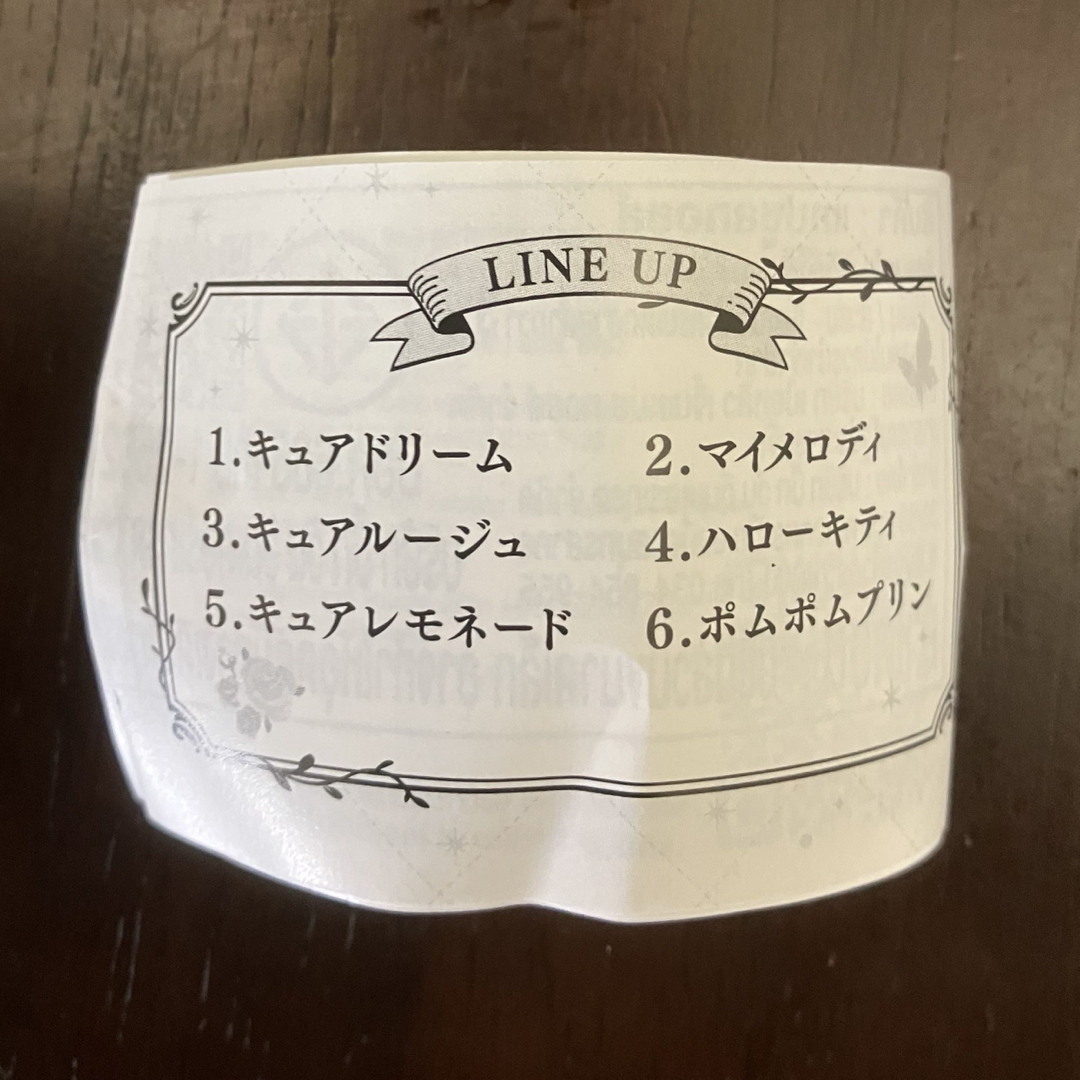 LINE UP
1.キュアドリーム 2.マイメロディ
3.キュアルージュ 4.ハローキティ
5.キュアレモネード 6.ポムポムプリン